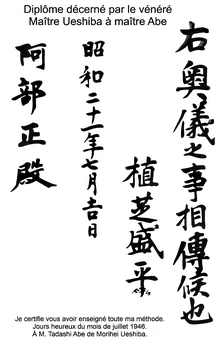 Diplôme décerné par le vénéré
Maître Ueshiba à maître Abe
右奥儀之事相傳候也
植芝盛平
昭和二十一年七月吉日
阿部正殿
Je certifie vous avoir enseigné toute ma méthode.
Jours heureux du mois de juillet 1946.
À M. Tadashi Abe de Morihei Ueshiba.